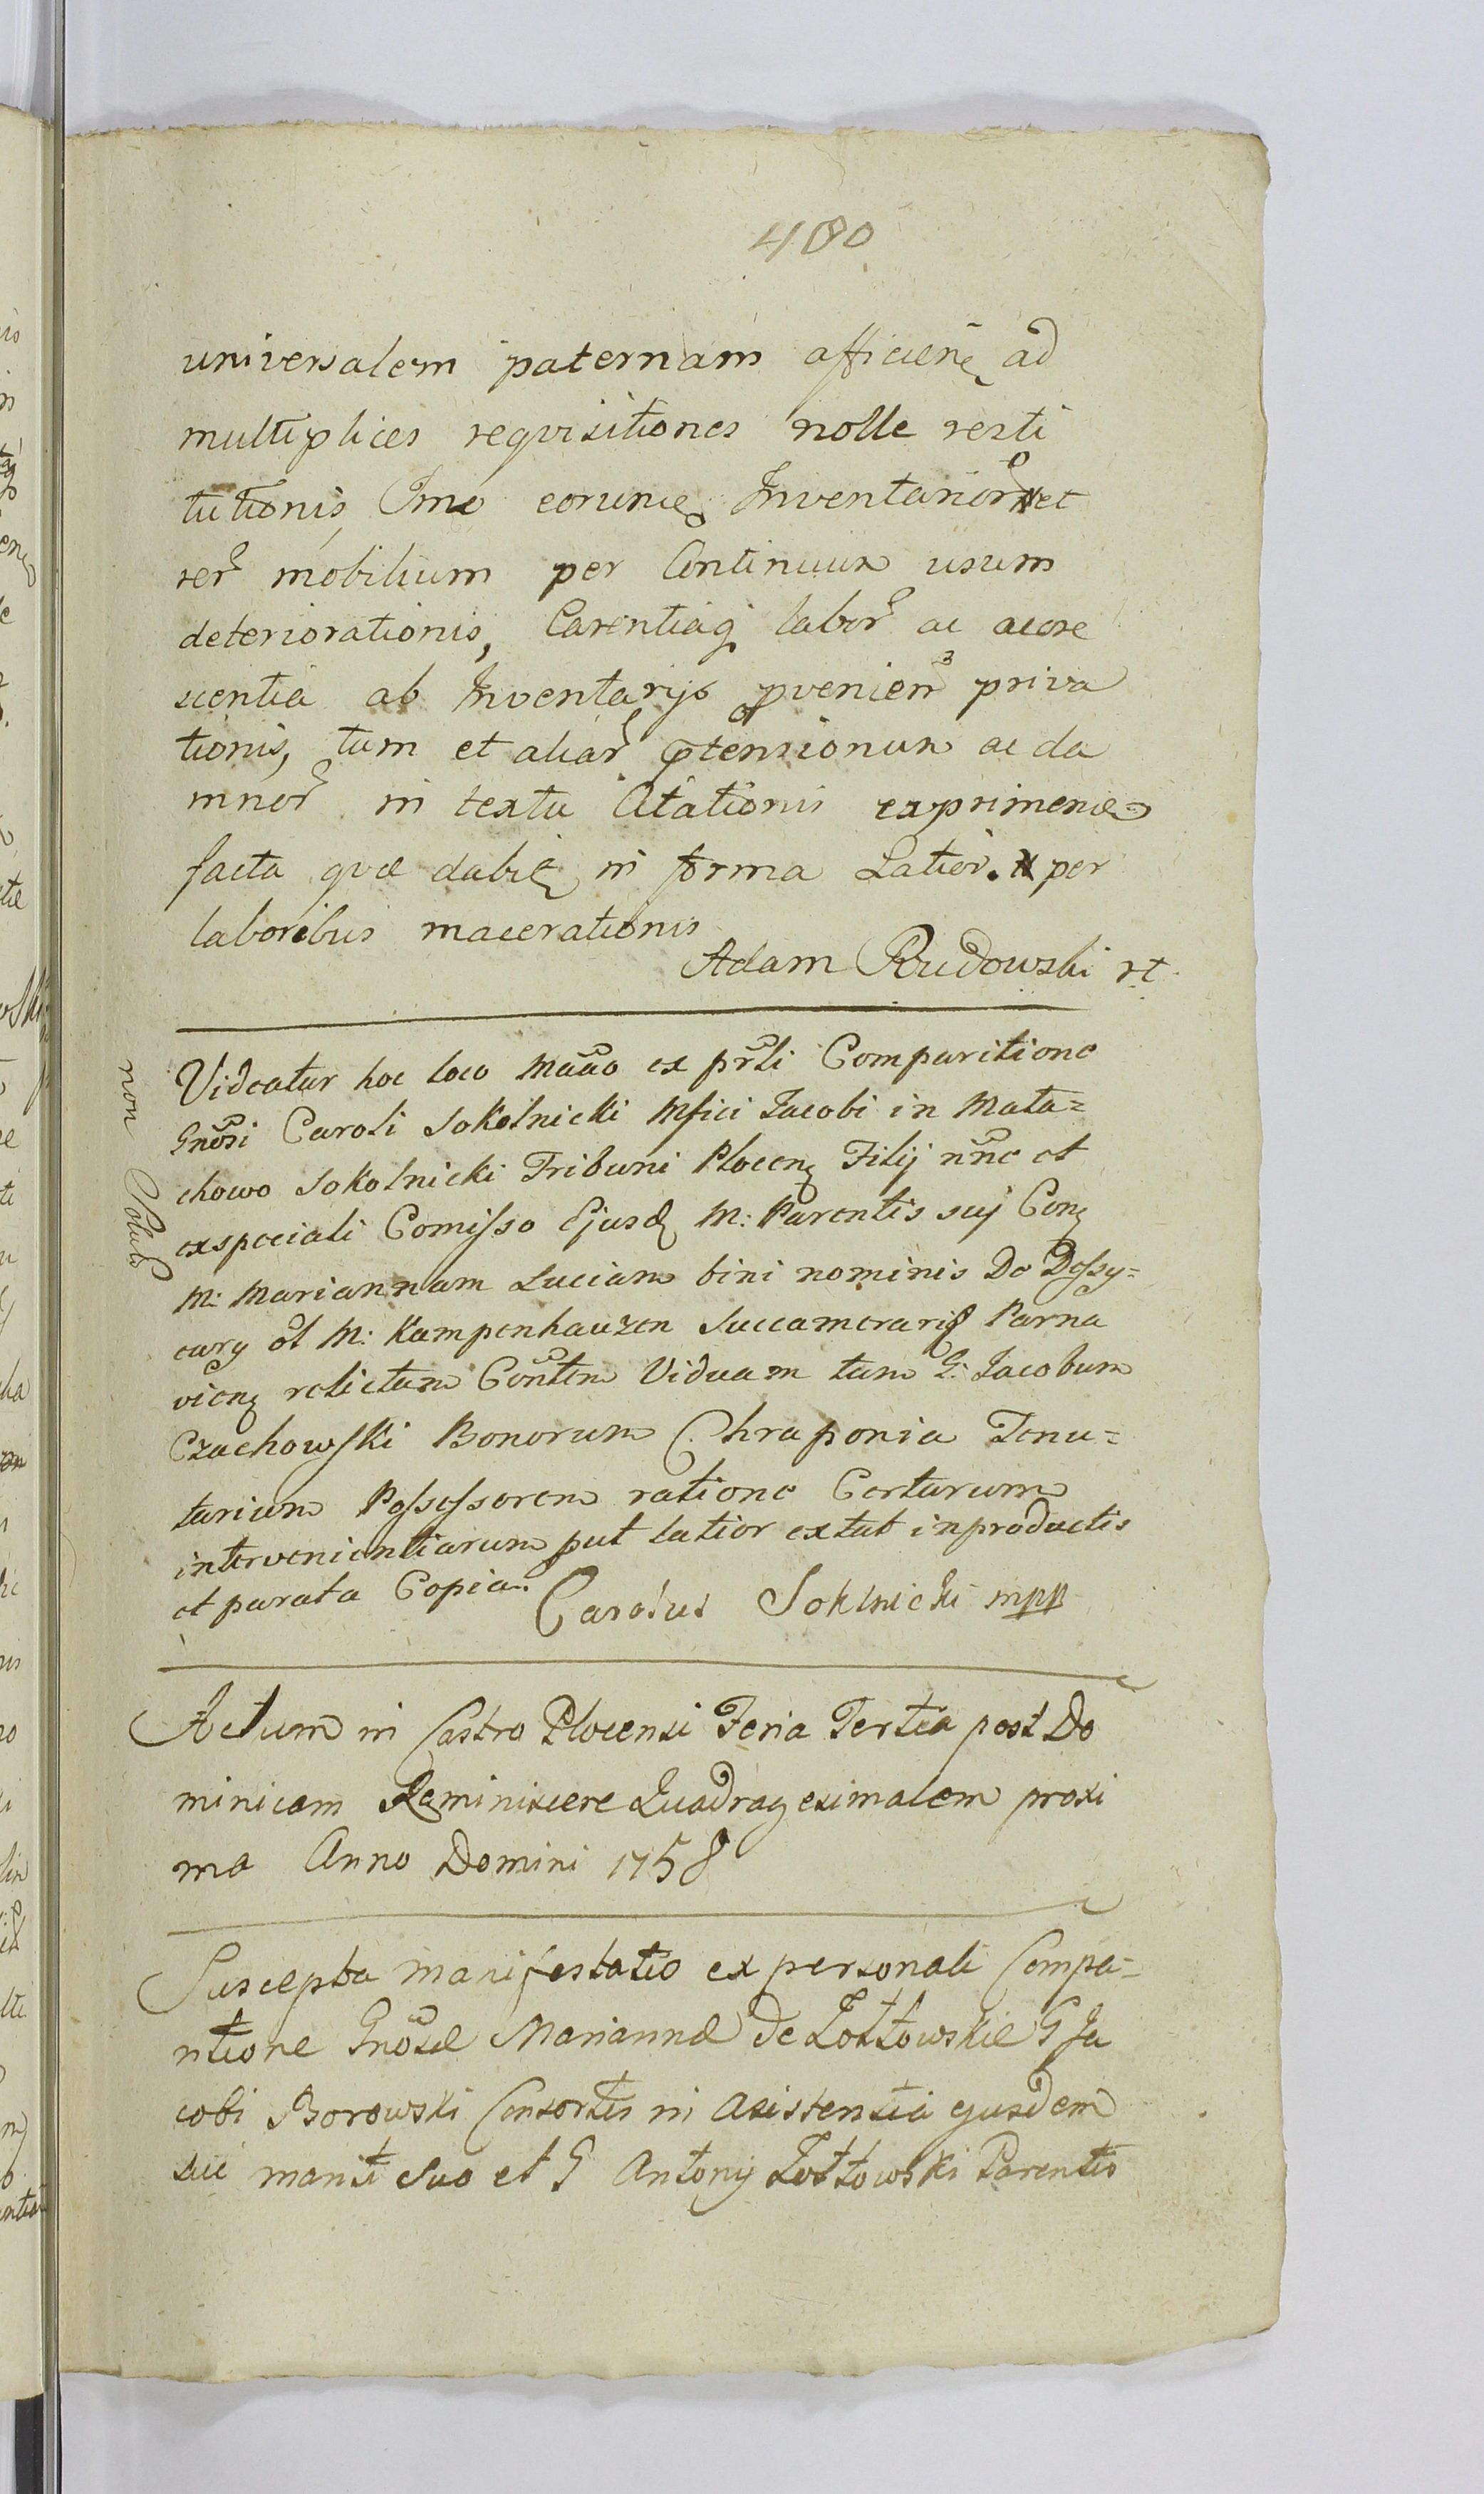 480
universalem paternam afficien ad
multiplices reqvisitiones nolle resti
tutionis, Imo eorund Inventarior et
rer mobilium per Continuum usum
deteriorationis, Carentiaq labor ac accre
scentia ab Inventarijs pvenien priva
tionis, tum et aliar ptensionum ac da
mnor in textu Citationis exprimend
facta qvæ dabit in forma Latior. per
laboribus macerationis
Adam Rudowski rt
Videatur hoc loco Maao ex prli Comparitione
Gnosi Caroli Sokolnicki Mfici Jacobi in Mata=
chowo Sokolnicki Tribuni Plocen Filij nnc et
exspeciali Comisso Ejusd M: Parentis suj Con
M: Mariannam Luciam bini nominis De
ol M: Kampenhauzen Succamerarij Parna
vien relictam Contem Viduam tum G: Jacobum
Czachowski Bonorum Chraponia Tenu=
tarium Possessorem ratione Certarum
intervenientiarum put latior extat inproductis
et parata Copia.
Carolus Soklnicki mpp
non Solut
Actum in Castro Plocensi Feria Tertia post Do
minicam Reminiscere Quadragesimalem proxi
ma Anno Domini 1758
Suscepta manifestatio ex personali Compa=
ritione Gnosæ Mariannæ de Żołtowskie G Ja
cobi Borowski Consortis in asistentia ejusdem
sui mariti Suo et G Antonij Żołtowski Parentis